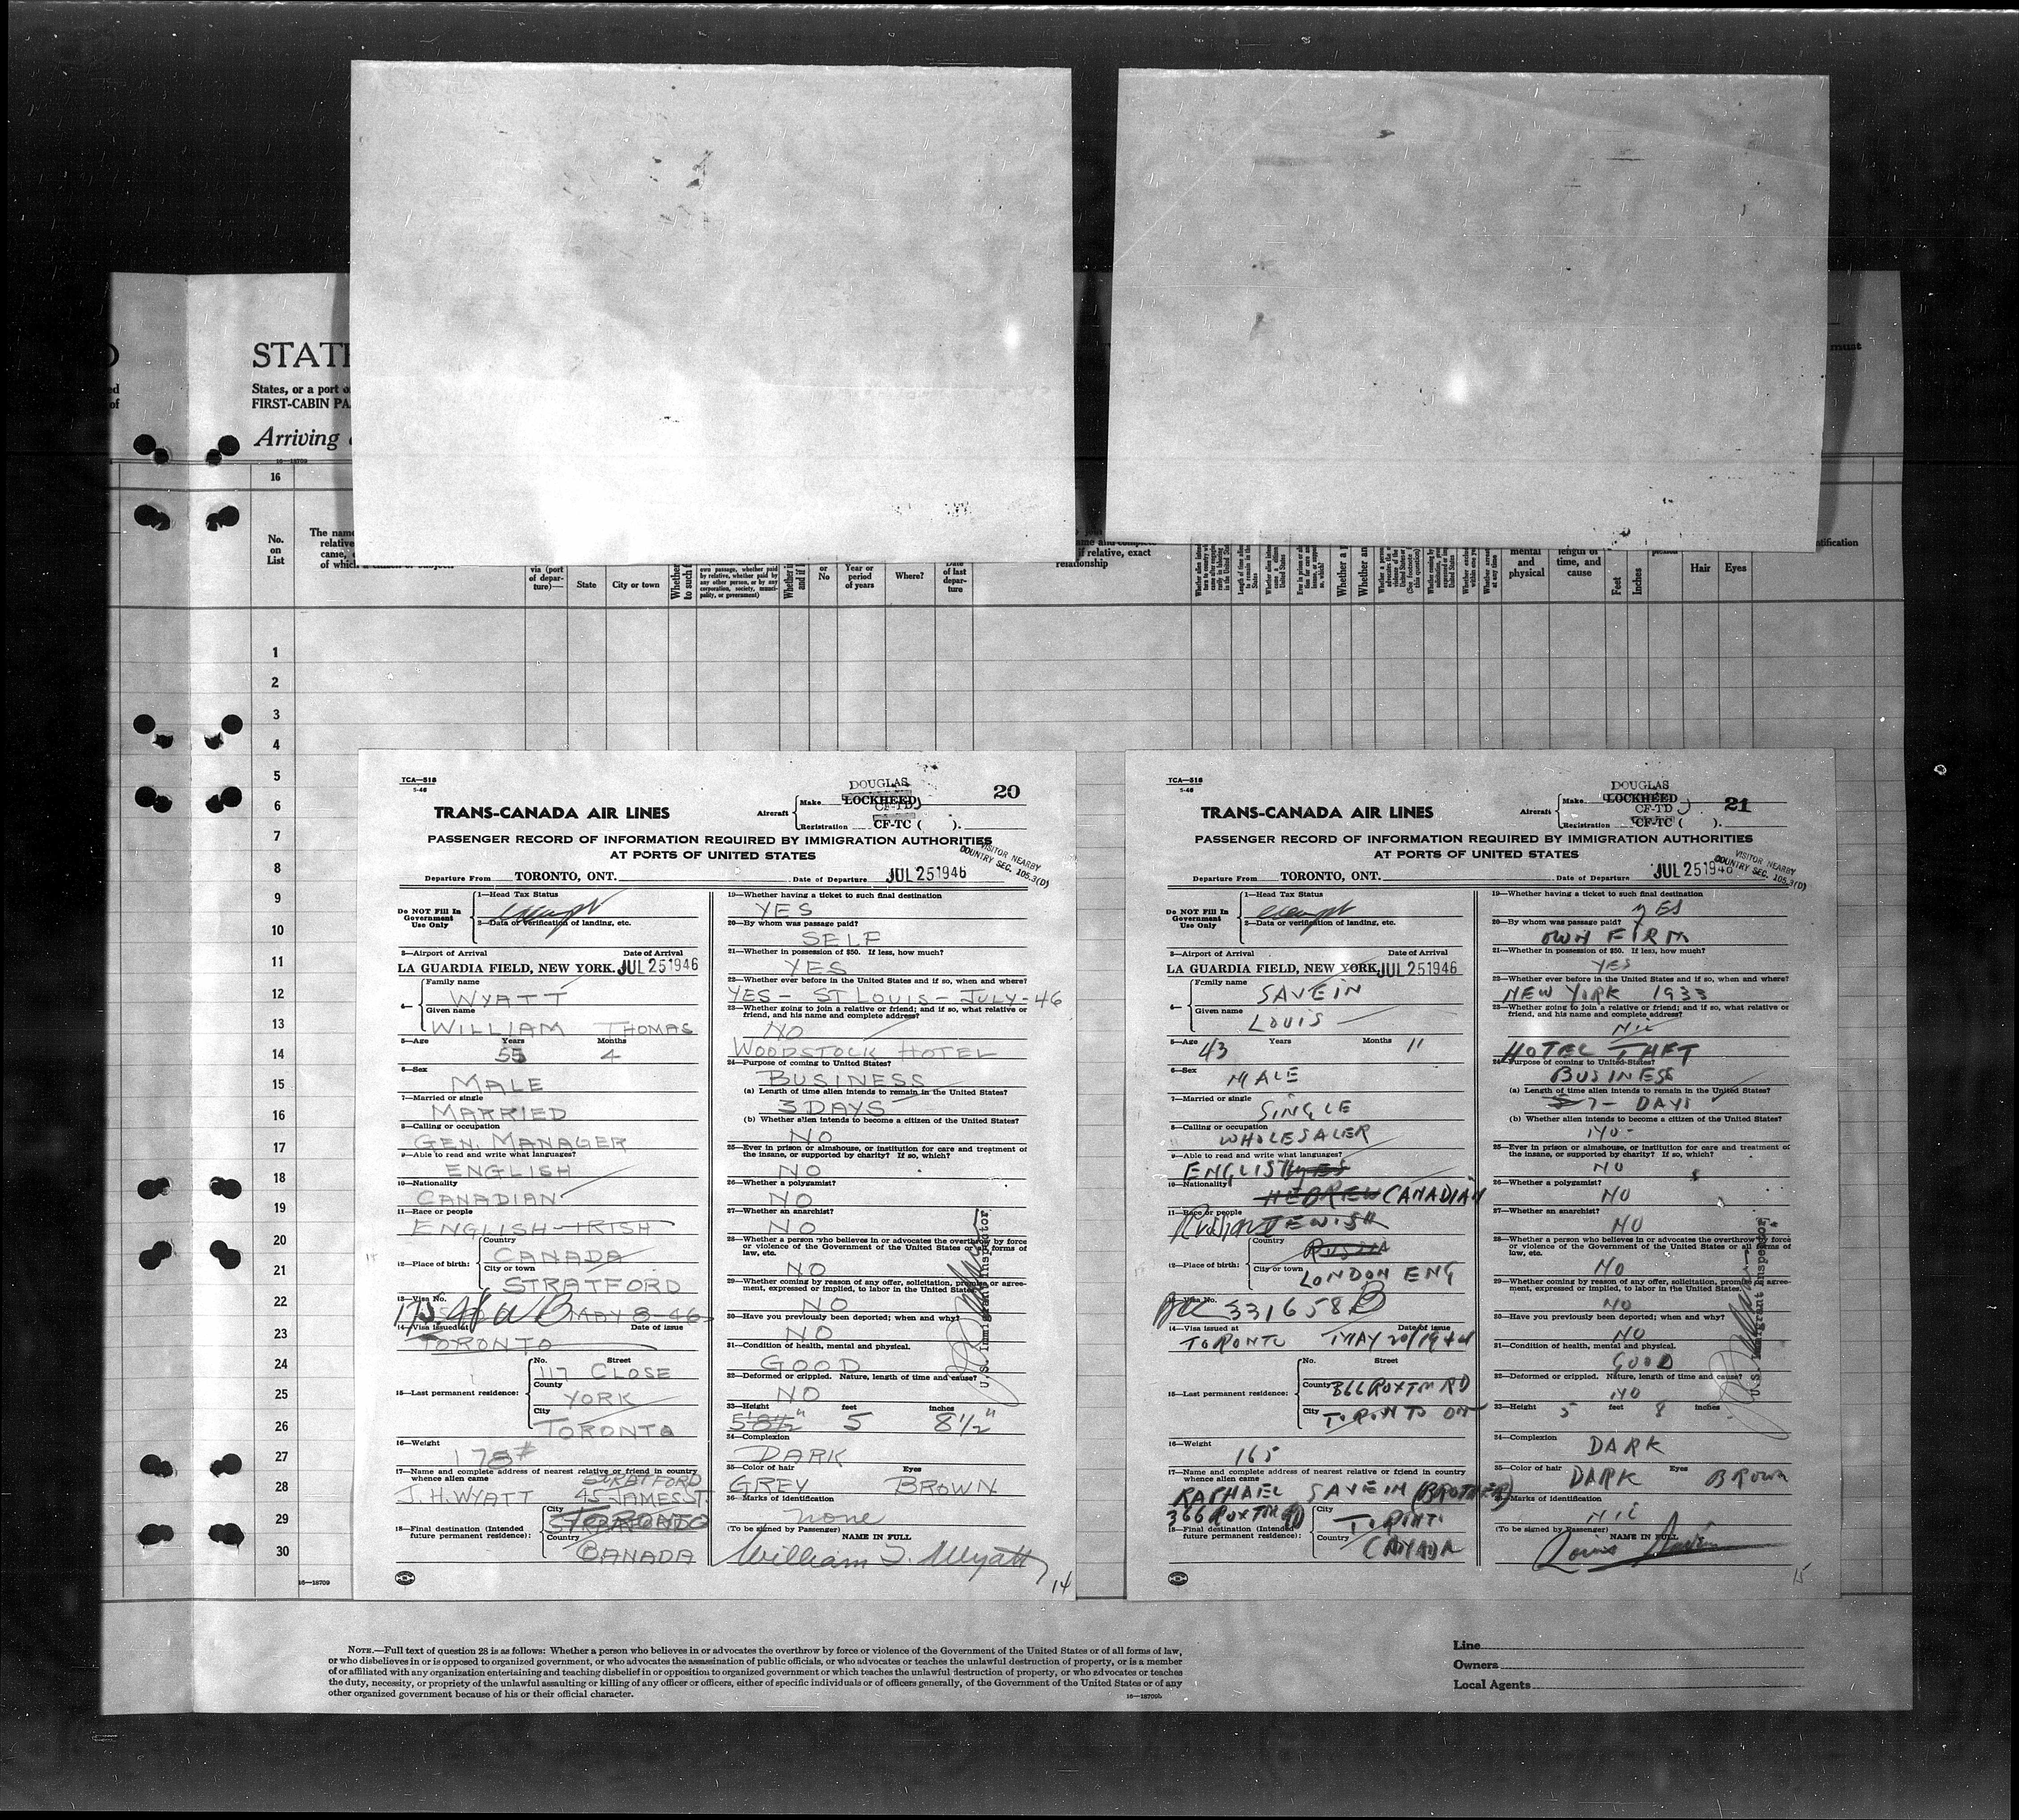 STATE
States, or a port o
FIRST-CABIN PA
Arriving
must
ed
of
16—18709
16
No.
on
List
The name
relative
came,
of which a citizen or subject
via (port
of depar-
ture)—
State
City or town
Whether
to such f
own passage, whether paid
by relative, whether paid by
any other person, or by any
corporation, society, munici-
pality, or government)
Whether i
and if l
or
No
Year or
period
of years
Where?
Date
of last
depar-
ture
if relative, exact
relationship
Whether a
Whether an
mental
and
physical
length of
time, and
cause
Feet
Inches
Hair
Eyes
ntification
1
2
3
4
5
6
7
8
9
10
11
12
13
14
15
16
17
18
19
20
21
22
23
24
25
26
27
28
29
30
16—18709
TCA—518
5-46
TRANS-CANADA AIR LINES
Aircraft
Make
DOUGLAS
LOCKHEED
CF-TD
Registration
CF-TC ( ).
20
PASSENGER RECORD OF INFORMATION REQUIRED BY IMMIGRATION AUTHORITIES
AT PORTS OF UNITED STATES
VISITOR NEARBY
COUNTRY SEC. 105.3(D)
Departure From TORONTO, ONT. Date of Departure JUL 25 1946
Do NOT Fill In
Government
Use Only
1—Head Tax Status
exempt
2—Data or verification of landing, etc.
3—Airport of Arrival Date of Arrival
LA GUARDIA FIELD, NEW YORK. JUL 25 1946
4—
Family name
WYATT
Given name
WILLIAM THOMAS
5—Age Years Months
55 4
6—Sex
MALE
7—Married or single
MARRIED
8—Calling or occupation
GEN. MANAGER
9—Able to read and write what languages?
ENGLISH
10—Nationality
CANADIAN
11—Race or people
ENGLISH-IRISH
12—Place of birth:
Country
CANADA
City or town
STRATFORD
13—Visa No.
MAY 8-46
14—Visa issued at Date of issue
TORONTO
15—Last permanent residence:
No. Street
117 CLOSE
County
YORK
City
TORONTO
16—Weight
178#
17—Name and complete address of nearest relative or friend in country
whence alien came
STRATFORD
J. H. WYATT 45 JAMES ST.
18—Final destination (Intended
future permanent residence):
City
TORONTO
Country
CANADA
19—Whether having a ticket to such final destination
YES
20—By whom was passage paid?
SELF
21—Whether in possession of $50. If less, how much?
YES
22—Whether ever before in the United States and if so, when and where?
YES - ST LOUIS - JULY - 46
23—Whether going to join a relative or friend; and if so, what relative or
friend, and his name and complete address?
NO
WOODSTOCK HOTEL
24—Purpose of coming to United States?
BUSINESS
(a) Length of time alien intends to remain in the United States?
3 DAYS
(b) Whether alien intends to become a citizen of the United States?
NO
25—Ever in prison or almshouse, or institution for care and treatment of
the insane, or supported by charity? If so, which?
NO
26—Whether a polygamist?
NO
27—Whether an anarchist?
NO
28—Whether a person who believes in or advocates the overthrow by force
or violence of the Government of the United States or all forms of
law, etc.
NO
29—Whether coming by reason of any offer, solicitation, promise or agree-
ment, expressed or implied, to labor in the United States.
NO
30—Have you previously been deported; when and why?
NO
31—Condition of health, mental and physical.
GOOD
32—Deformed or crippled. Nature, length of time and cause?
NO
33—Height feet inches
5'8½" 5 8½"
34—Complexion
DARK
35—Color of hair Eyes
GREY BROWN
36—Marks of identification
none
(To be signed by Passenger)
NAME IN FULL
William T. Wyatt
U.S. Immigrant Inspector
14
TCA—518
5-46
TRANS-CANADA AIR LINES
Aircraft
Make
DOUGLAS
LOCKHEED
CF-TD
Registration
CF-TC ( ).
21
PASSENGER RECORD OF INFORMATION REQUIRED BY IMMIGRATION AUTHORITIES
AT PORTS OF UNITED STATES
VISITOR NEARBY
COUNTRY SEC. 105.3(D)
Departure From TORONTO, ONT. Date of Departure JUL 25 1946
Do NOT Fill In
Government
Use Only
1—Head Tax Status
exempt
2—Data or verification of landing, etc.
3—Airport of Arrival Date of Arrival
LA GUARDIA FIELD, NEW YORK. JUL 25 1946
4—
Family name
SAVEIN
Given name
LOUIS
5—Age Years Months
43 11
6—Sex
MALE
7—Married or single
SINGLE
8—Calling or occupation
WHOLESALER
9—Able to read and write what languages?
ENGLISH YES
10—Nationality
HEBREW CANADIAN
11—Race or people
Russian JEWISH
12—Place of birth:
Country
RUSSIA
City or town
LONDON ENG
13—Visa No.
331658
14—Visa issued at Date of issue
TORONTO MAY 20/1944
15—Last permanent residence:
No. Street
County
366 ROXTON RD
City
TORONTO ONT
16—Weight
165
17—Name and complete address of nearest relative or friend in country
whence alien came
RAPHAEL SAVEIN (BROTHER)
366 ROXTON RD
18—Final destination (Intended
future permanent residence):
City
TORONTO
Country
CANADA
19—Whether having a ticket to such final destination
YES
20—By whom was passage paid?
OWN FIRM
21—Whether in possession of $50. If less, how much?
YES
22—Whether ever before in the United States and if so, when and where?
NEW YORK 1933
23—Whether going to join a relative or friend; and if so, what relative or
friend, and his name and complete address?
NIL
HOTEL TAFT
24—Purpose of coming to United States?
BUSINESS
(a) Length of time alien intends to remain in the United States?
7 - DAYS
(b) Whether alien intends to become a citizen of the United States?
NO -
25—Ever in prison or almshouse, or institution for care and treatment of
the insane, or supported by charity? If so, which?
NO
26—Whether a polygamist?
NO
27—Whether an anarchist?
NO
28—Whether a person who believes in or advocates the overthrow by force
or violence of the Government of the United States or all forms of
law, etc.
NO
29—Whether coming by reason of any offer, solicitation, promise or agree-
ment, expressed or implied, to labor in the United States.
NO
30—Have you previously been deported; when and why?
NO
31—Condition of health, mental and physical.
GOOD
32—Deformed or crippled. Nature, length of time and cause?
NO
33—Height 5 feet 8 inches
34—Complexion
DARK
35—Color of hair Eyes
DARK BROWN
36—Marks of identification
NIL
(To be signed by Passenger)
NAME IN FULL
Louis Savein
U.S. Immigrant Inspector
15
NOTE.—Full text of question 28 is as follows: Whether a person who believes in or advocates the overthrow by force or violence of the Government of the United States or of all forms of law,
or who disbelieves in or is opposed to organized government, or who advocates the assassination of public officials, or who advocates or teaches the unlawful destruction of property, or is a member
of or affiliated with any organization entertaining and teaching disbelief in or opposition to organized government or which teaches the unlawful destruction of property, or who advocates or teaches
the duty, necessity, or propriety of the unlawful assaulting or killing of any officer or officers, either of specific individuals or of officers generally, of the Government of the United States or of any
other organized government because of his or their official character.
16—18709b
Line
Owners
Local Agents